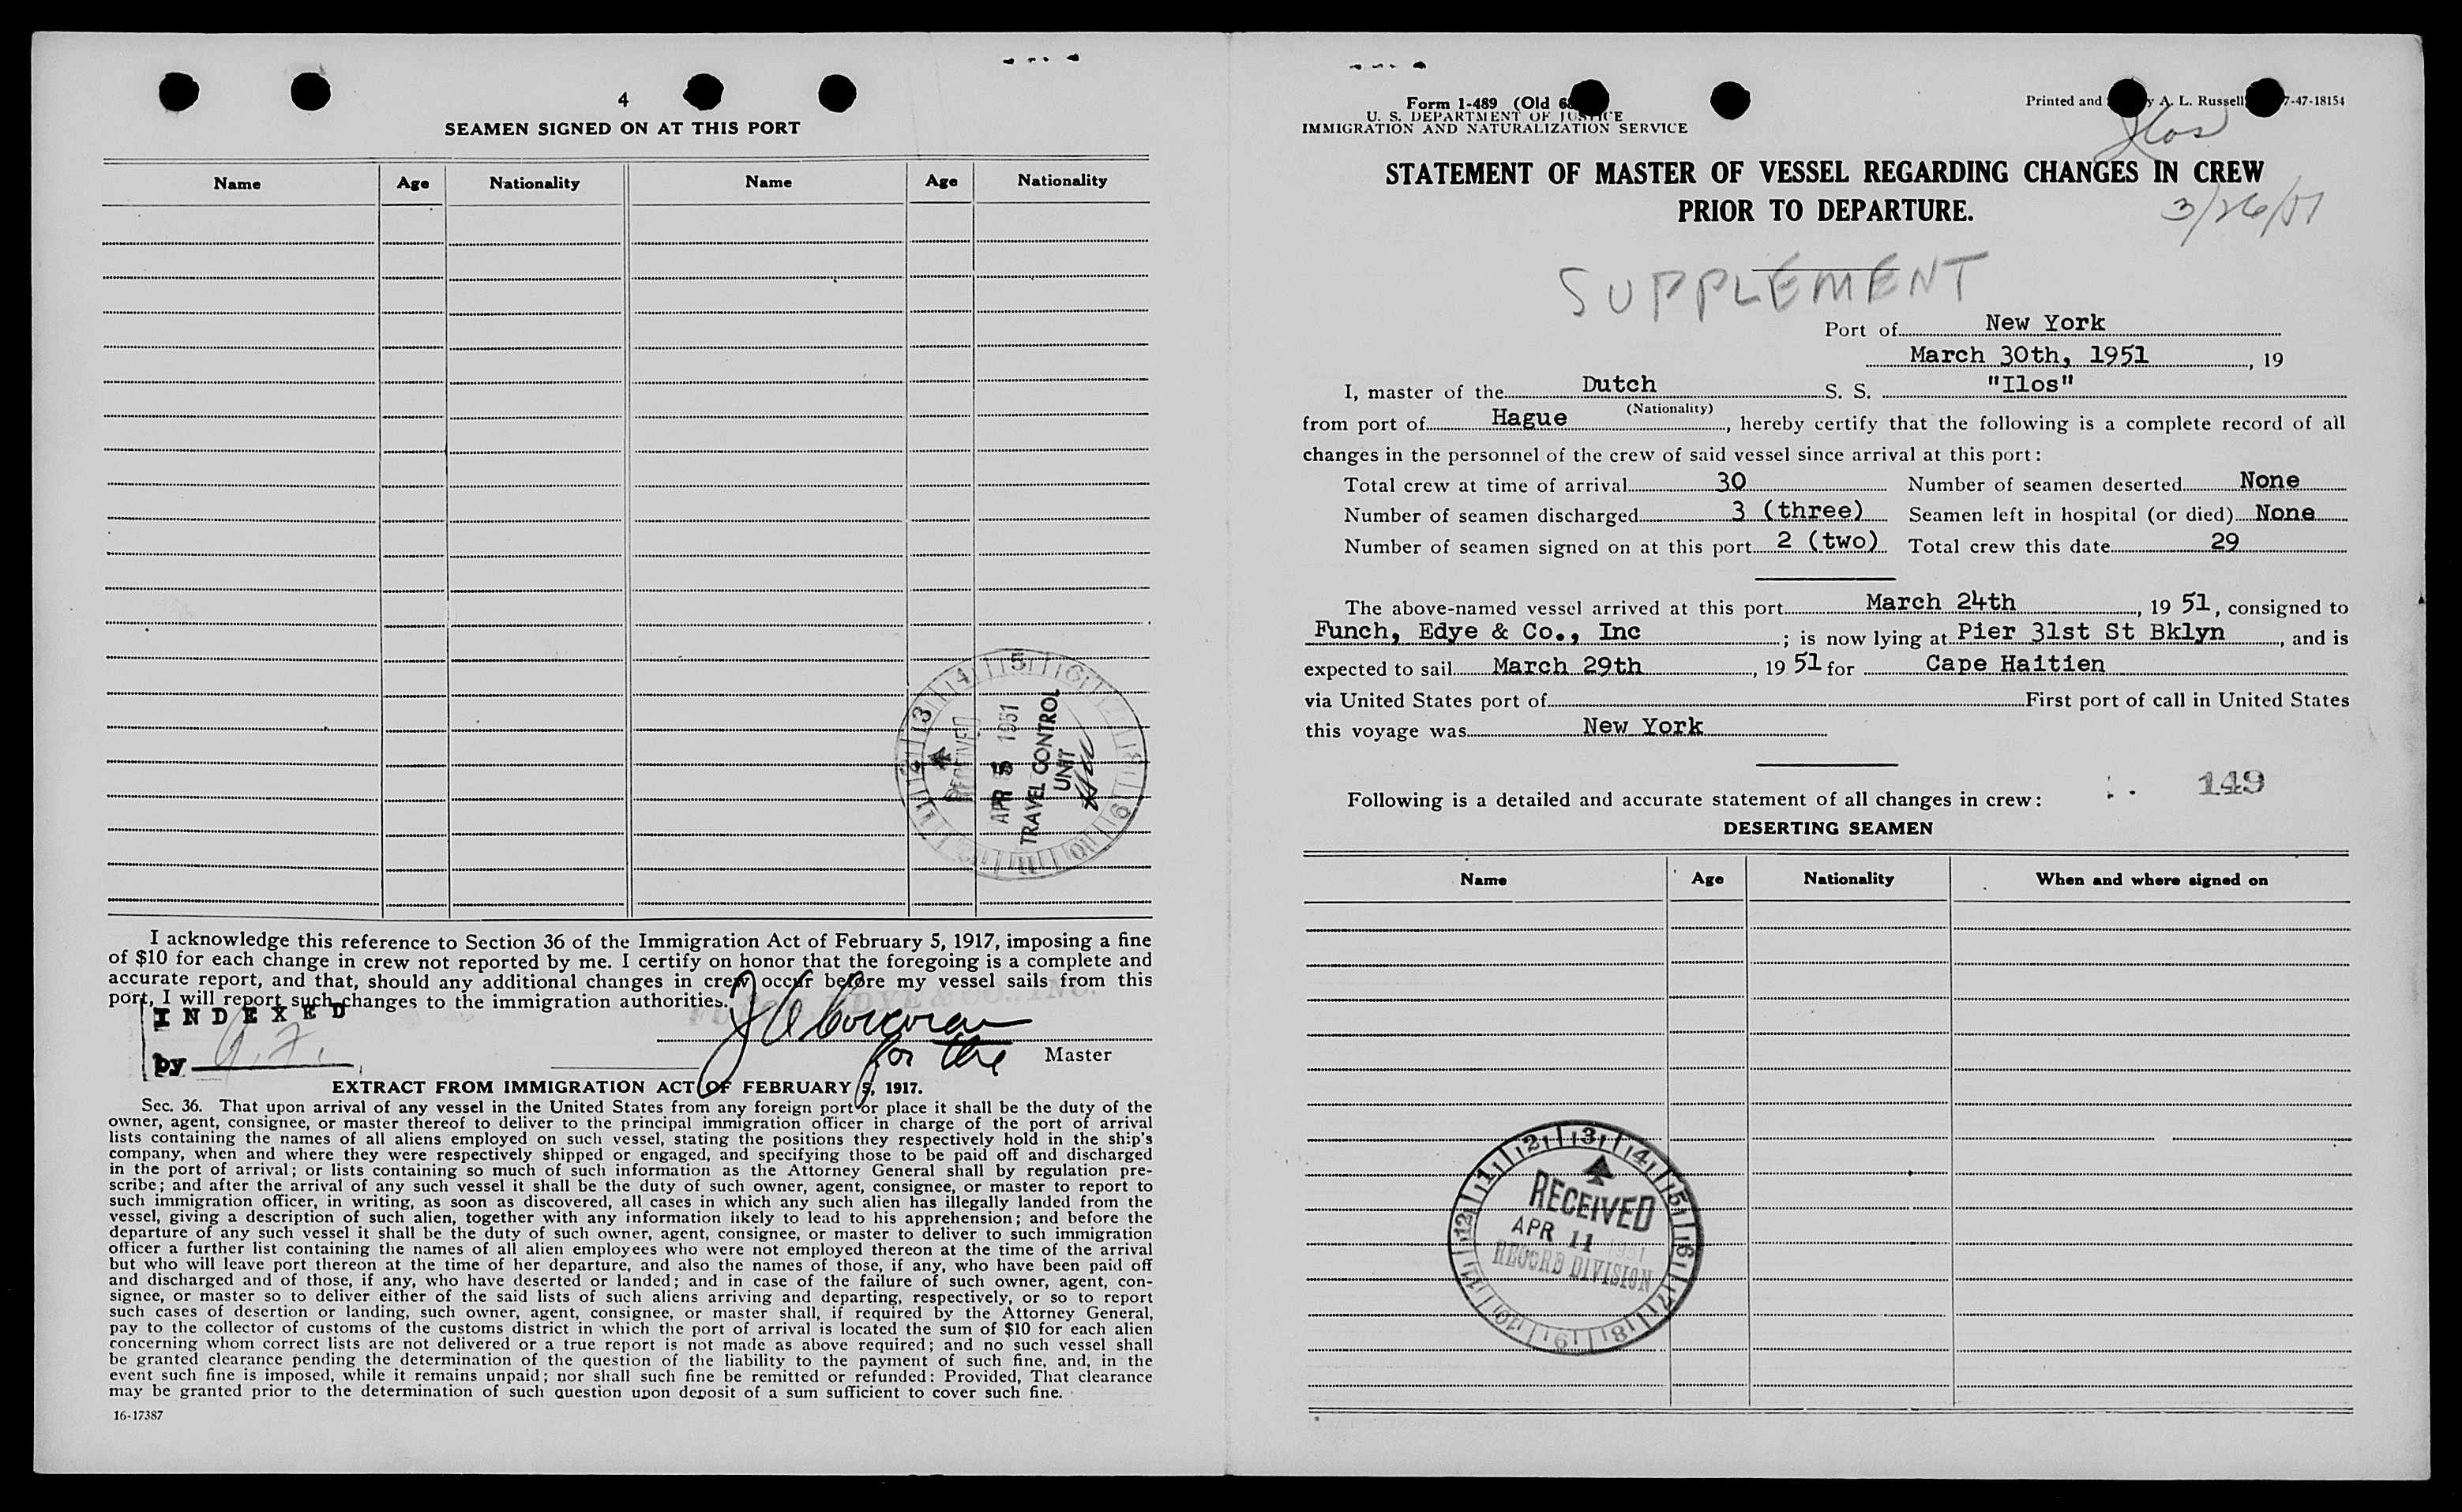 4
SEAMEN SIGNED ON AT THIS PORT
Name Age Nationality Name Age Nationality
RECEIVED
APR 5 1951
TRAVEL CONTROL
UNIT
I acknowledge this reference to Section 36 of the Immigration Act of February 5, 1917, imposing a fine
of $10 for each change in crew not reported by me. I certify on honor that the foregoing is a complete and
accurate report, and that, should any additional changes in crew occur before my vessel sails from this
port, I will report such changes to the immigration authorities.
EDYE & CO., INC.
INDEXED
J A Corcoran
by
for the Master
EXTRACT FROM IMMIGRATION ACT OF FEBRUARY 5, 1917.
Sec. 36. That upon arrival of any vessel in the United States from any foreign port or place it shall be the duty of the
owner, agent, consignee, or master thereof to deliver to the principal immigration officer in charge of the port of arrival
lists containing the names of all aliens employed on such vessel, stating the positions they respectively hold in the ship's
company, when and where they were respectively shipped or engaged, and specifying those to be paid off and discharged
in the port of arrival; or lists containing so much of such information as the Attorney General shall by regulation pre-
scribe; and after the arrival of any such vessel it shall be the duty of such owner, agent, consignee, or master to report to
such immigration officer, in writing, as soon as discovered, all cases in which any such alien has illegally landed from the
vessel, giving a description of such alien, together with any information likely to lead to his apprehension; and before the
departure of any such vessel it shall be the duty of such owner, agent, consignee, or master to deliver to such immigration
officer a further list containing the names of all alien employees who were not employed thereon at the time of the arrival
but who will leave port thereon at the time of her departure, and also the names of those, if any, who have been paid off
and discharged and of those, if any, who have deserted or landed; and in case of the failure of such owner, agent, con-
signee, or master so to deliver either of the said lists of such aliens arriving and departing, respectively, or so to report
such cases of desertion or landing, such owner, agent, consignee, or master shall, if required by the Attorney General,
pay to the collector of customs of the customs district in which the port of arrival is located the sum of $10 for each alien
concerning whom correct lists are not delivered or a true report is not made as above required; and no such vessel shall
be granted clearance pending the determination of the question of the liability to the payment of such fine, and, in the
event such fine is imposed, while it remains unpaid; nor shall such fine be remitted or refunded: Provided, That clearance
may be granted prior to the determination of such question upon deposit of a sum sufficient to cover such fine.
16-17387
Form 1-489 (Old 6
U. S. DEPARTMENT OF JUSTICE
IMMIGRATION AND NATURALIZATION SERVICE
Printed and y A. L. Russell 7-47-18154
Ilos
STATEMENT OF MASTER OF VESSEL REGARDING CHANGES IN CREW
PRIOR TO DEPARTURE.
3/26/51
SUPPLEMENT
Port of New York
March 30th, 1951, 19
I, master of the Dutch S. S. "Ilos"
(Nationality)
from port of Hague, hereby certify that the following is a complete record of all
changes in the personnel of the crew of said vessel since arrival at this port:
Total crew at time of arrival 30 Number of seamen deserted None
Number of seamen discharged 3 (three) Seamen left in hospital (or died) None
Number of seamen signed on at this port 2 (two) Total crew this date 29
The above-named vessel arrived at this port March 24th, 19 51, consigned to
Funch, Edye & Co., Inc; is now lying at Pier 31st St Bklyn, and is
expected to sail March 29th, 19 51 for Cape Haitien
via United States port of First port of call in United States
this voyage was New York
149
Following is a detailed and accurate statement of all changes in crew:
DESERTING SEAMEN
Name Age Nationality When and where signed on
RECEIVED
APR 11 1951
RECORD DIVISION